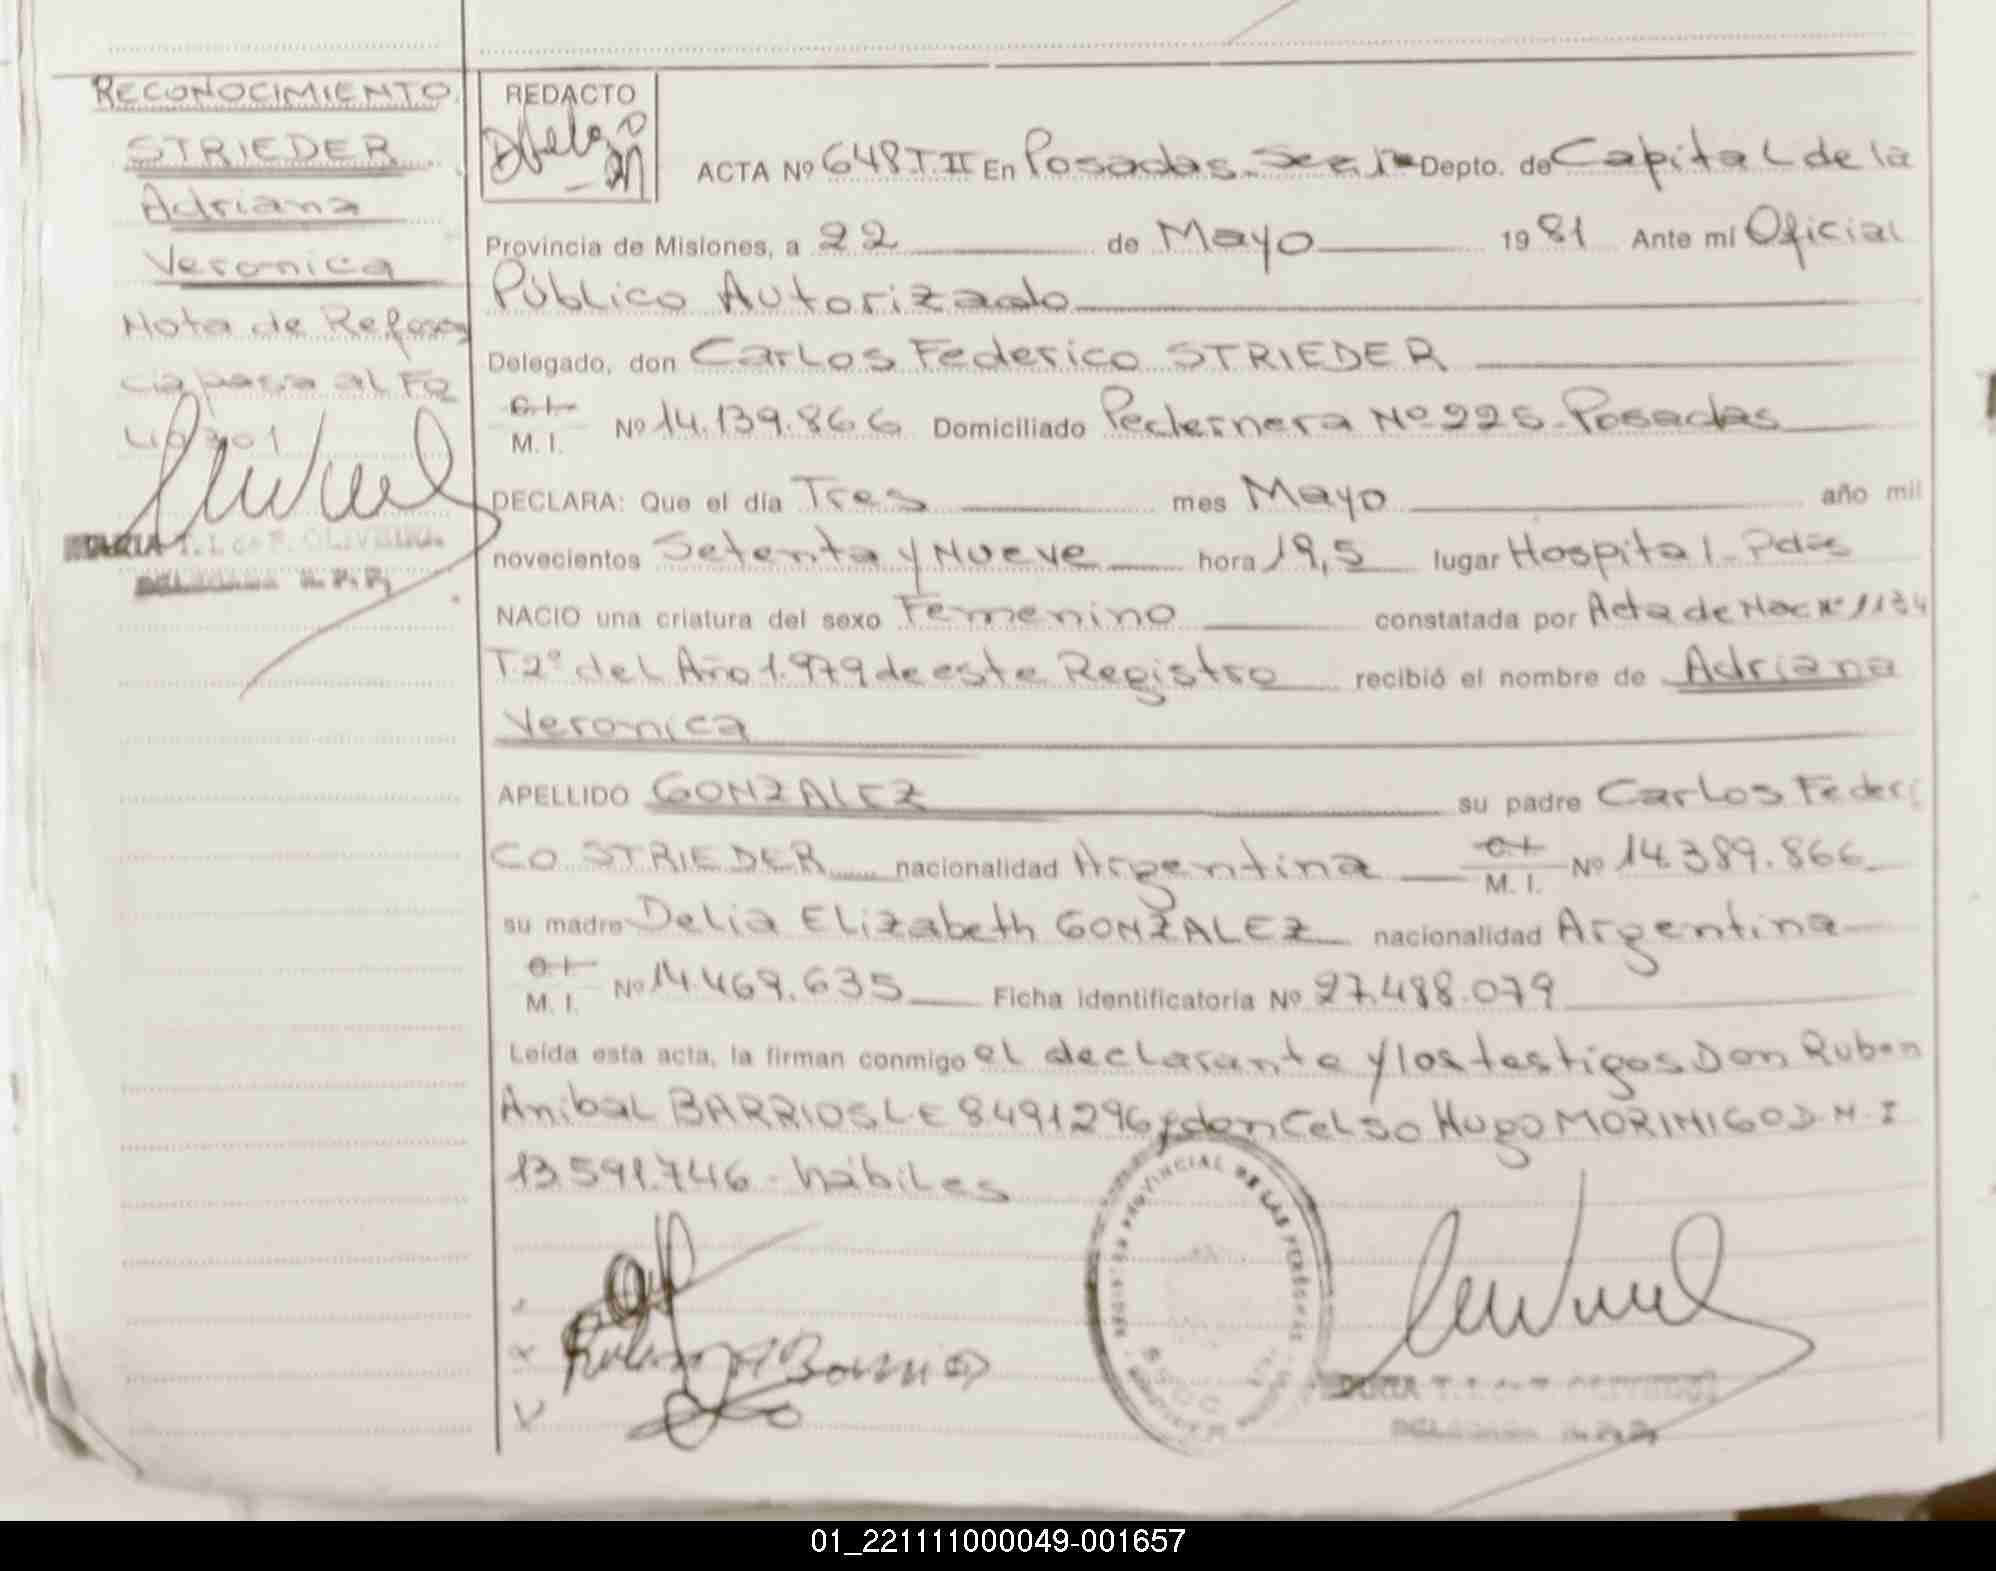 RECONOCIMIENTO
STRIEDER
Adriana
Veronica
Nota de Referen
cia pasa al Fo
Lio 301
REDACTO
ACTA Nº 648 T. II En Posadas Sec. 1ª Depto. de Capital de la
Provincia de Misiones, a 22 de Mayo 1981 Ante mi Oficial
Público Autorizado
Delegado, don Carlos Federico STRIEDER
C.I.
M. I. Nº 14.139.866 Domiciliado Pedernera Nº 225 - Posadas
DECLARA: Que el día Tres mes Mayo año mil
novecientos Setenta y Nueve hora 19,5 lugar Hospital - Pdas
NACIO una criatura del sexo Femenino constatada por Acta de Nac Nº 1134
T. 2º del Año 1.979 de este Registro recibió el nombre de Adriana
Veronica
APELLIDO GONZALEZ su padre Carlos Federi
co STRIEDER nacionalidad Argentina C.I. M. I. Nº 14.389.866
su madre Delia Elizabeth GONZALEZ nacionalidad Argentina
C.I.
M. I. Nº 14.469.635 Ficha identificatoria Nº 27.488.079
Leída esta acta, la firman conmigo el declarante y los testigos Don Ruben
Anibal BARRIOS L E 8491296 y don Celso Hugo MORINIGO D. N. I
13.591.746 - hábiles
PROVINCIAL DE LAS PERSONAS
01_221111000049-001657